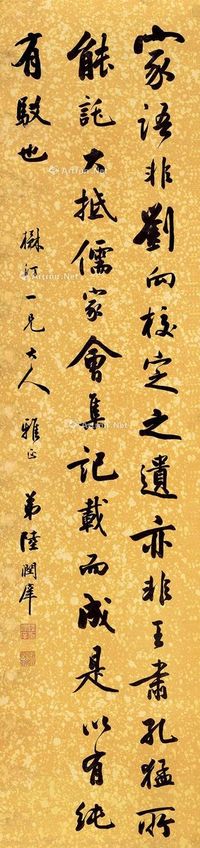 家語非劉向校定之遺亦非王肅孔猛所
能託大抵儒家會集記載而成是以有純
有駁也
樾汀一兄大人雅正
弟陸潤庠